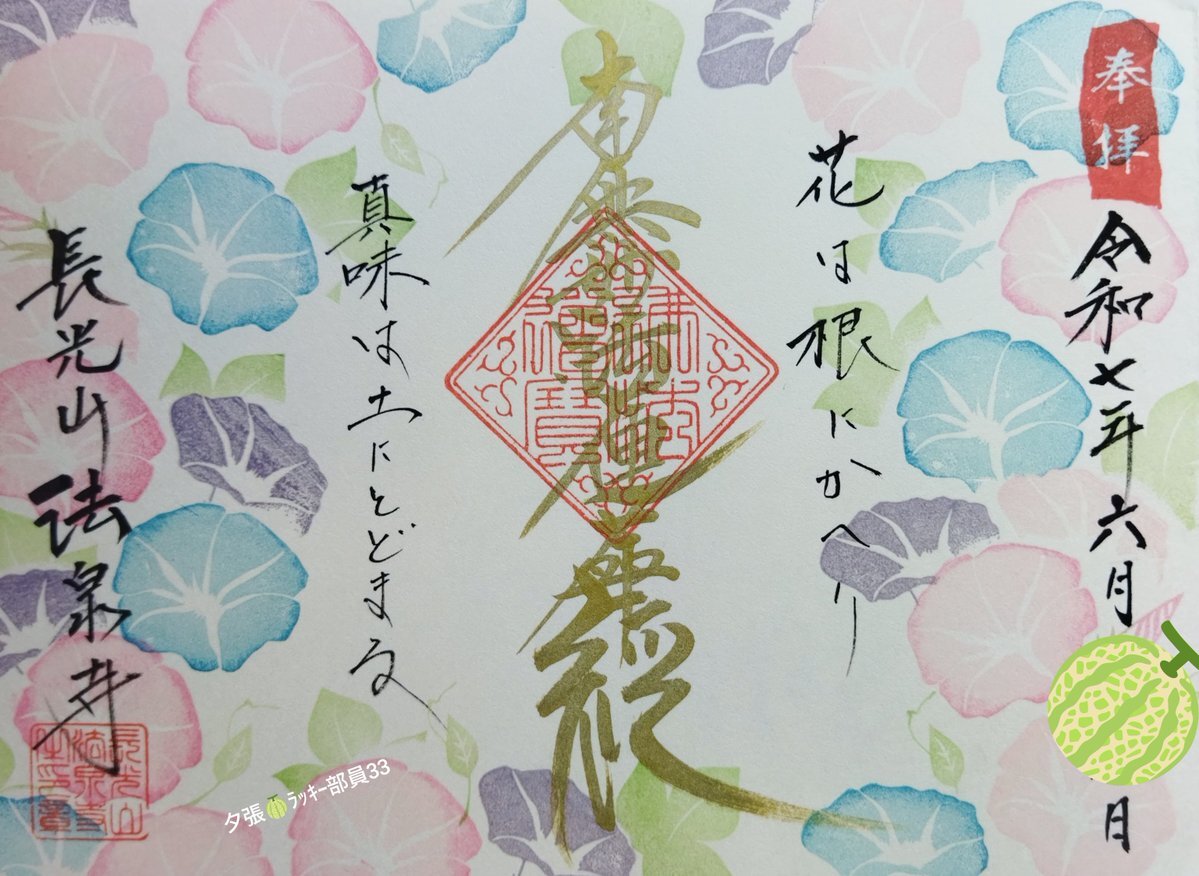 奉拝
令和七年六月 日
花は根にかへり
南無妙法蓮華経
真味は土にとどまる
長光山 法泉寺
夕張🍈ラッキー部員33